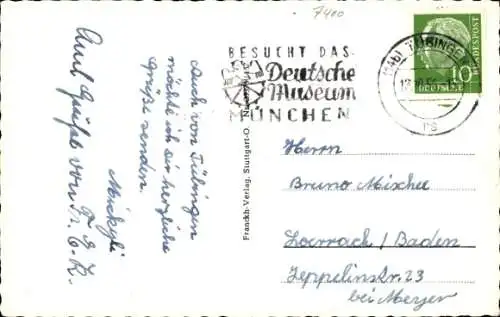 7400
BESUCHT DAS
Deutsche
Museum
MÜNCHEN
TÜBINGEN
DEUTSCHE BUNDESPOST
10
Auch von Tübingen
möchte ich ein herzliche
Grüße senden.
Auch Grüße von Fr. E.K.
Franckh-Verlag, Stuttgart-O.
Herrn
Bruno Mischee
Loerrach / Baden
Zeppelinstr. 23
bei Meyer